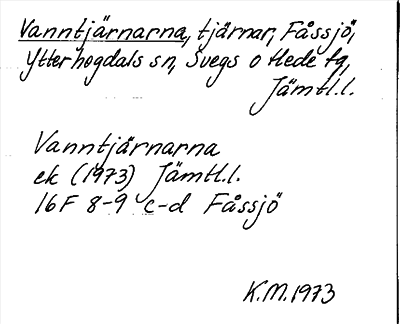 Vanntjärnarna, tjärnar, Fåssjö,
Ytterhogdals sn, Svegs o Hede tg,
Jämtl.l.
Vanntjärnarna
ek (1973) Jämtl.l.
16F 8-9 c-d Fåssjö
K.M. 1973